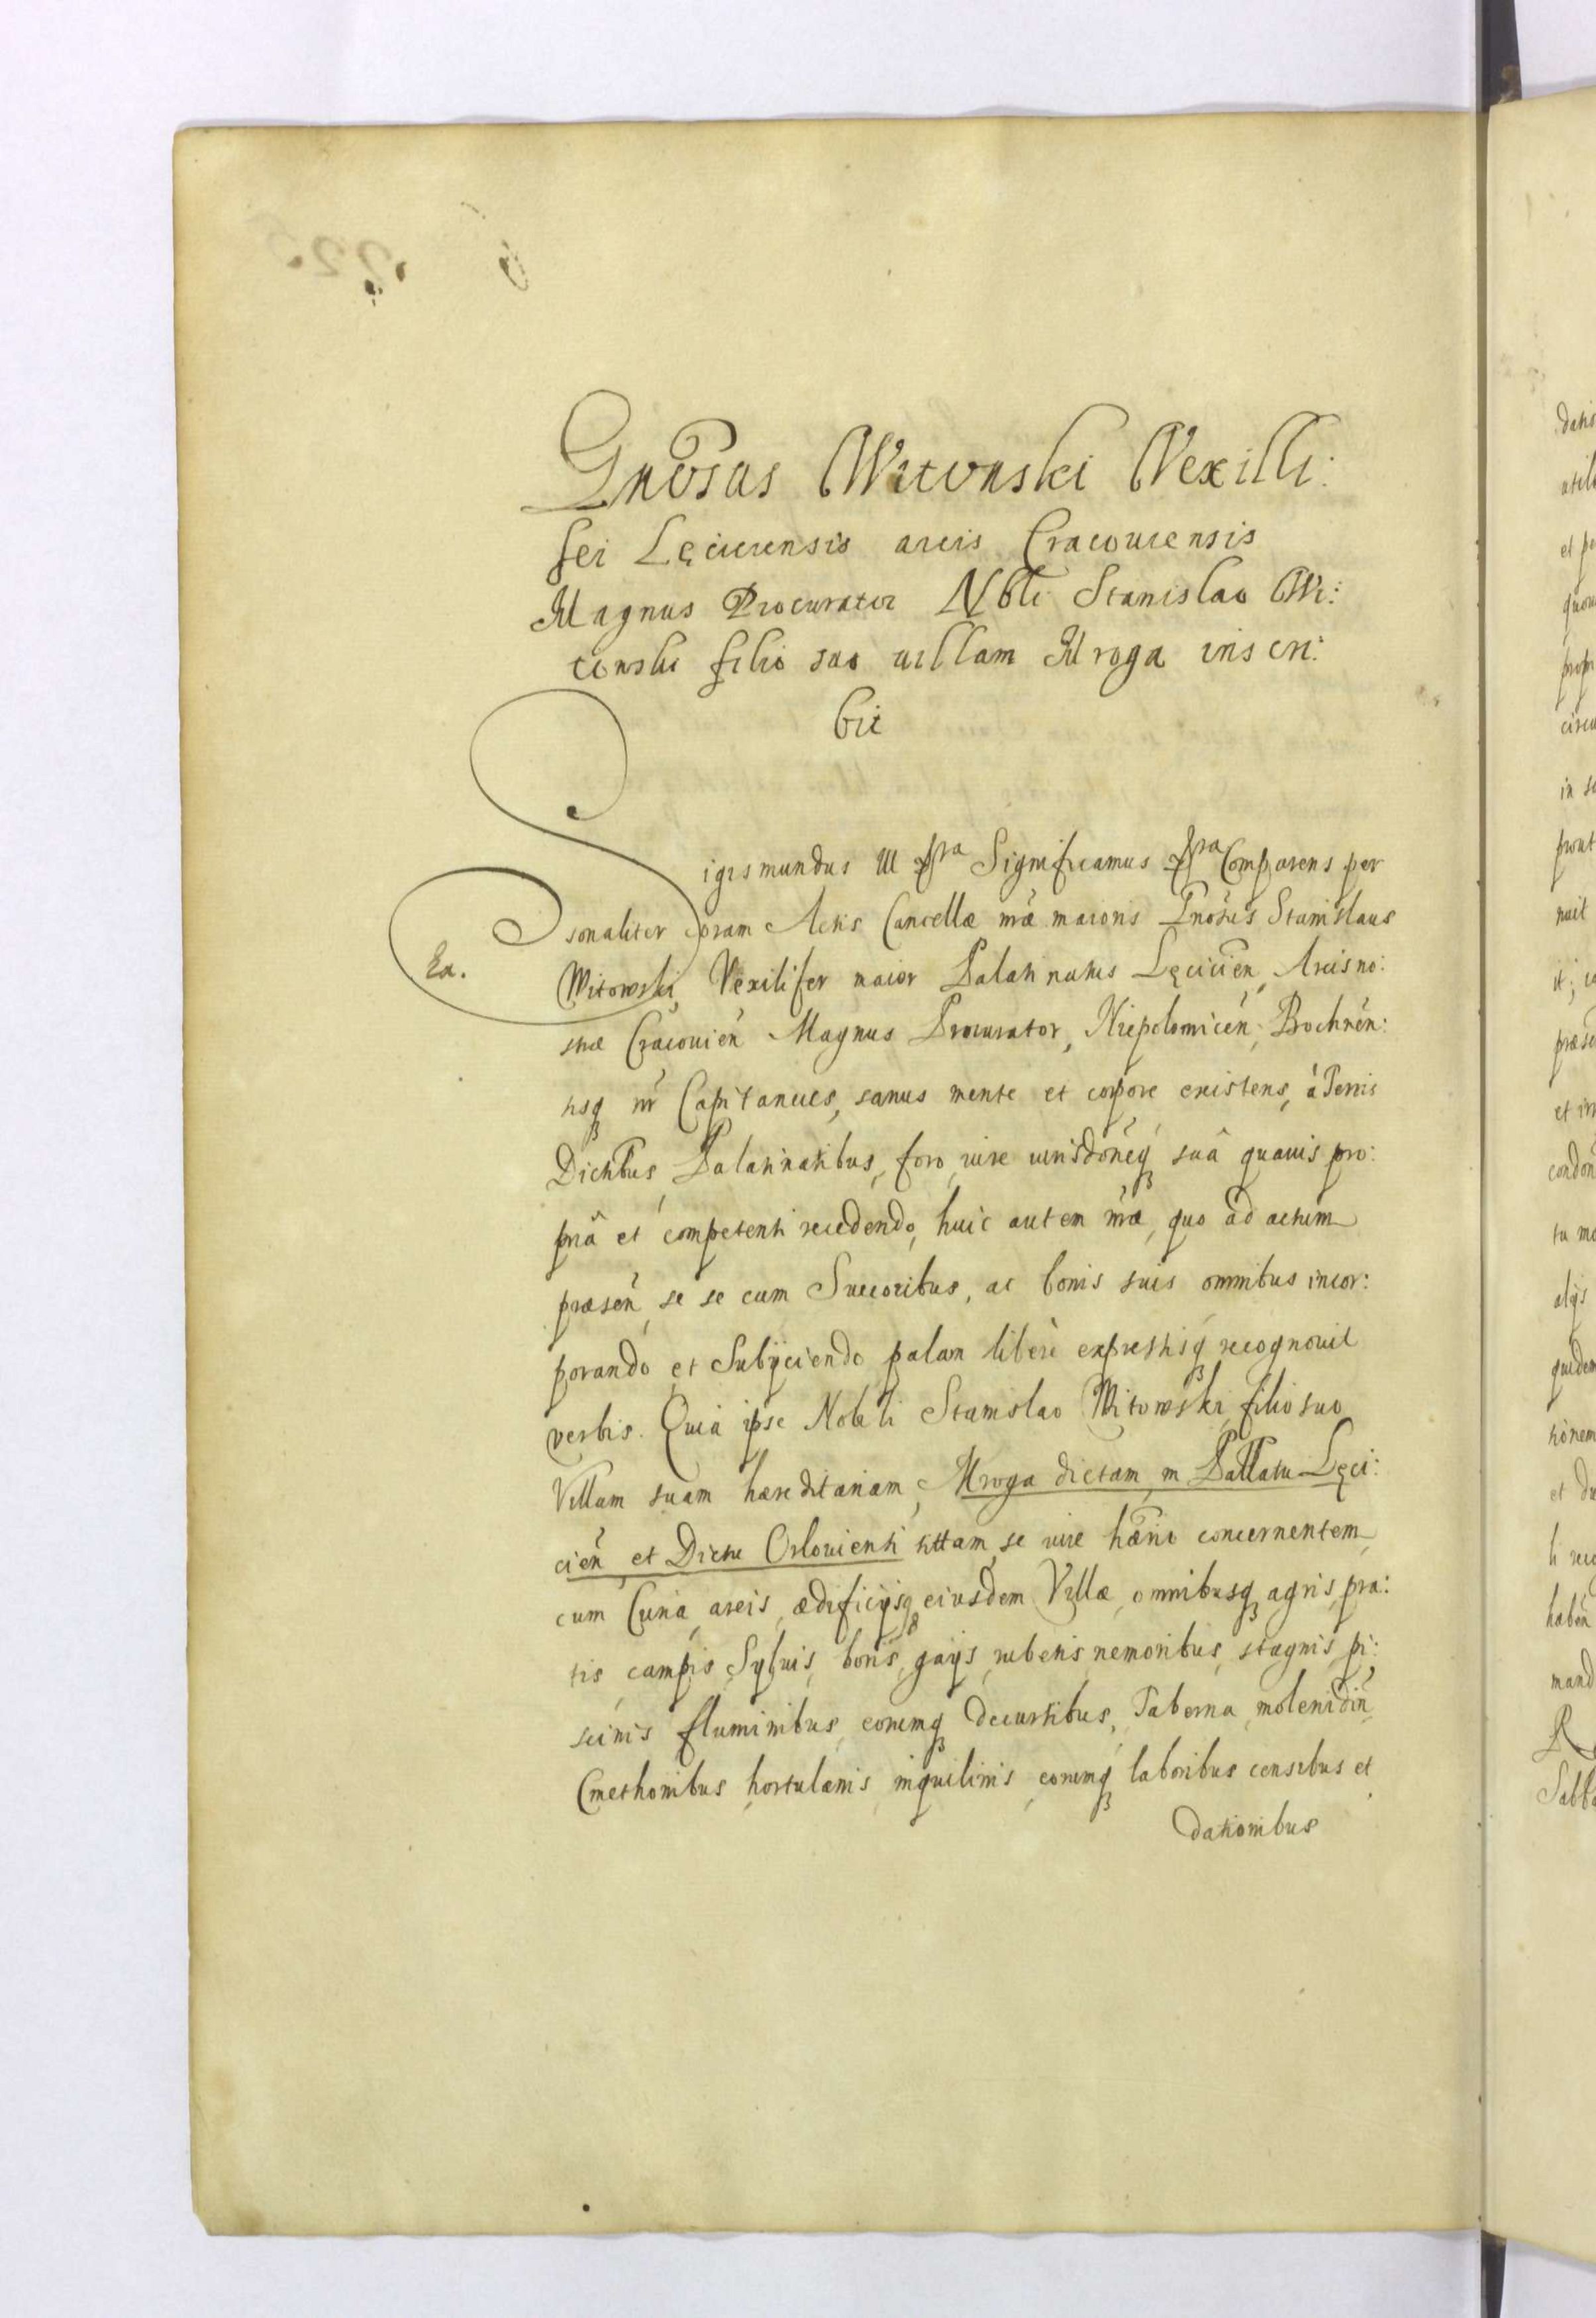 Gnosus Witowski Vexilli:
feri Lęciciensis arcis Cracouiensis
Magnus Procurator Nbli Stanislao Wi:
towski filio suo uillam Mroga inscri:
bit
Sigismundus III etc Significamus etc Comparens per
sonaliter coram Actis Cancellæ nræ maioris Gnosus Stanislaus
Ex.
Witowski, Vexilifer maior Palatinatus Lęcicien, Arcis no:
stræ Cracouien Magnus Procurator, Niepolomicen, Bochnen:
tisq nr Capitaneus, sanus mente et corpore existens, à Terris
Dictibus Palatinatibus, foro, iure iurisdoneq suâ quauis pro:
priâ et competenti recedendo, huic autem nræ, quo ad actum
præsen, se se cum Succoribus, ac bonis suis omnibus incor:
porando et Subijciendo palam liberè expressisq recognouit
verbis. Quia ipse Nobili Stanislao Witowski filio suo
Villam suam hæreditariam, Mroga dictam, in Pallatu Lęci:
cien et Dictu Orlouienti sittam, se iure hærio concernentem
cum Curia, areis, ædificijsq eiusdem Villæ, omnibusq agris, pra:
tis, campis, Syluis, boris, gays, rubetis, nemoribus, stagnis, pi:
scinis fluminibus, eorumq decursibus, Taberna, molendin
Cmethonibus, hortulanis, inquilinis, eorumq laboribus censibus et
dationibus